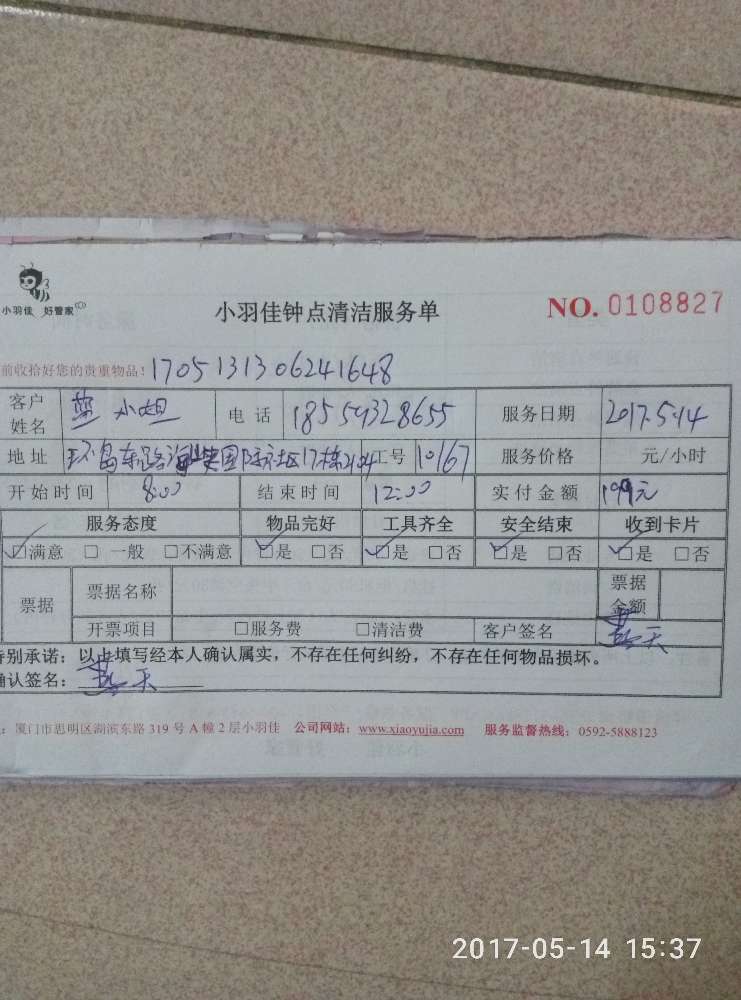 小羽佳 好管家
小羽佳钟点清洁服务单
NO. 0108827
前收拾好您的贵重物品! 1705131306241648
客户姓名 小姐 电话 18559328655 服务日期 2017.5.14
地址 环岛东路 17栋2104 工号 10167 服务价格 元/小时
开始时间 8:00 结束时间 12:00 实付金额 199元
服务态度 物品完好 工具齐全 安全结束 收到卡片
☑满意 □ 一般 □不满意 ☑是 □否 ☑是 □否 ☑是 □否 ☑是 □否
票据 票据名称 票据金额
开票项目 □服务费 □清洁费 客户签名 天
特别承诺：以上填写经本人确认属实，不存在任何纠纷，不存在任何物品损坏。
确认签名： 天
：厦门市思明区湖滨东路 319 号 A 幢 2 层小羽佳 公司网站：www.xiaoyujia.com 服务监督热线：0592-5888123
2017-05-14 15:37